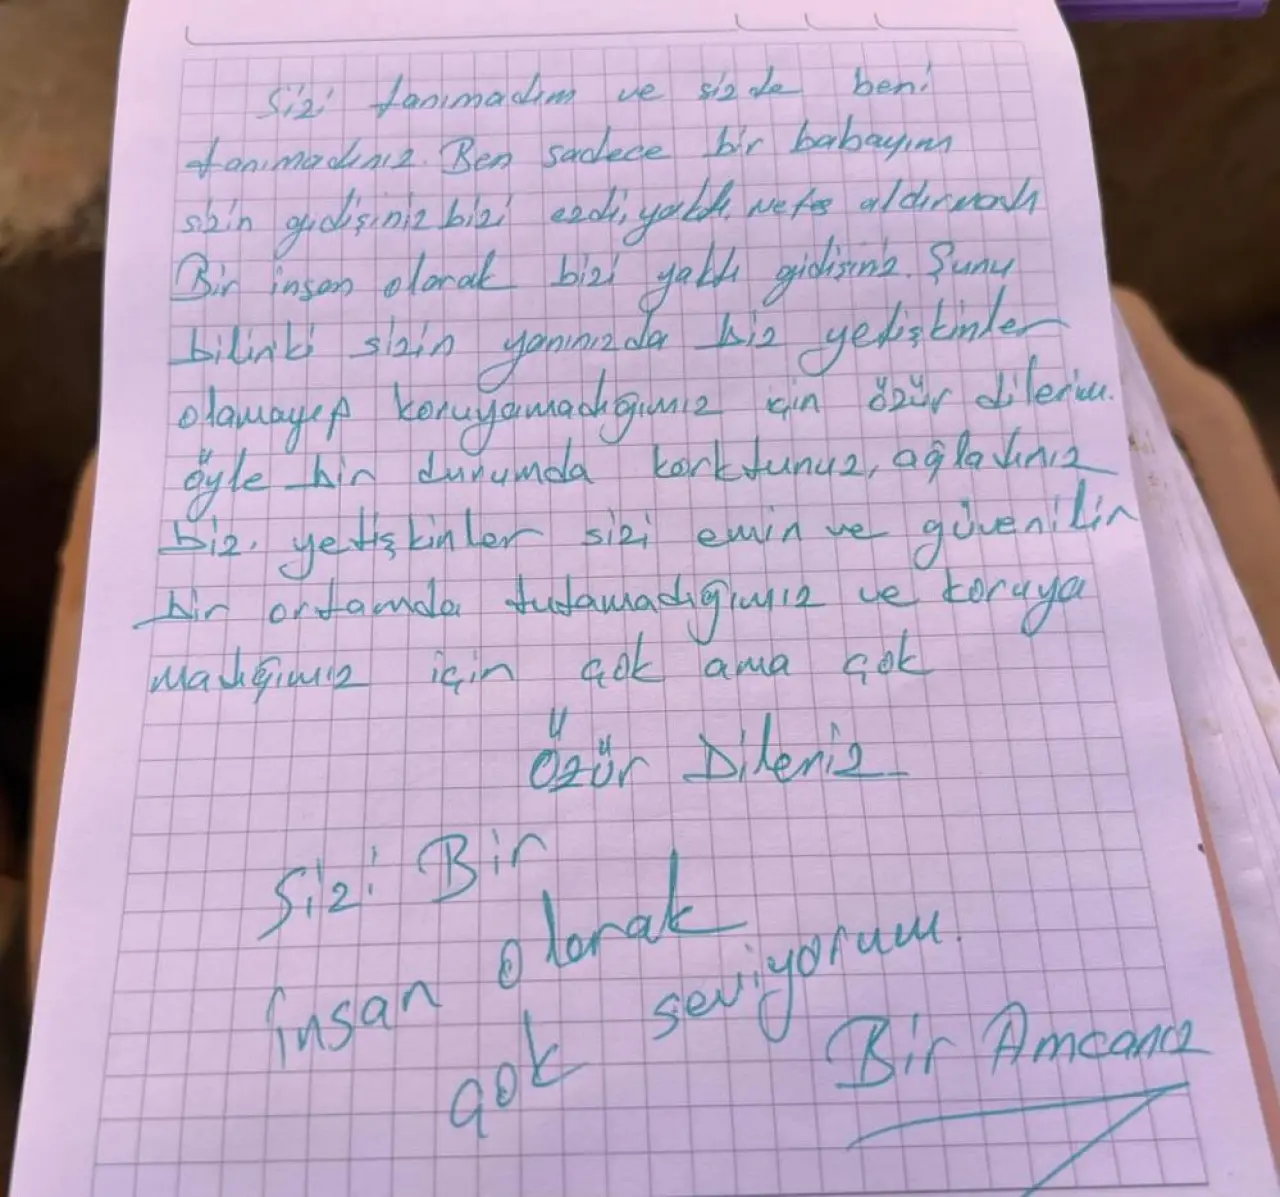 Sizi tanımadım ve sizde beni
tanımadınız. Ben sadece bir babayım
sizin gidişiniz bizi ezdi, yaktı, nefes aldırmadı
Bir insan olarak bizi yaktı gidişiniz. Şunu
bilinki sizin yanınızda biz yetişkinler
olamayıp koruyamadığımız için özür dilerim.
öyle bir durumda korktunuz, ağladınız
biz. yetişkinler sizi emin ve güvenilir
bir ortamda tutamadığımız ve koruya
madığımız için çok ama çok
Özür Dileriz
Sizi Bir
insan olarak
çok seviyorum.
Bir Amcanız